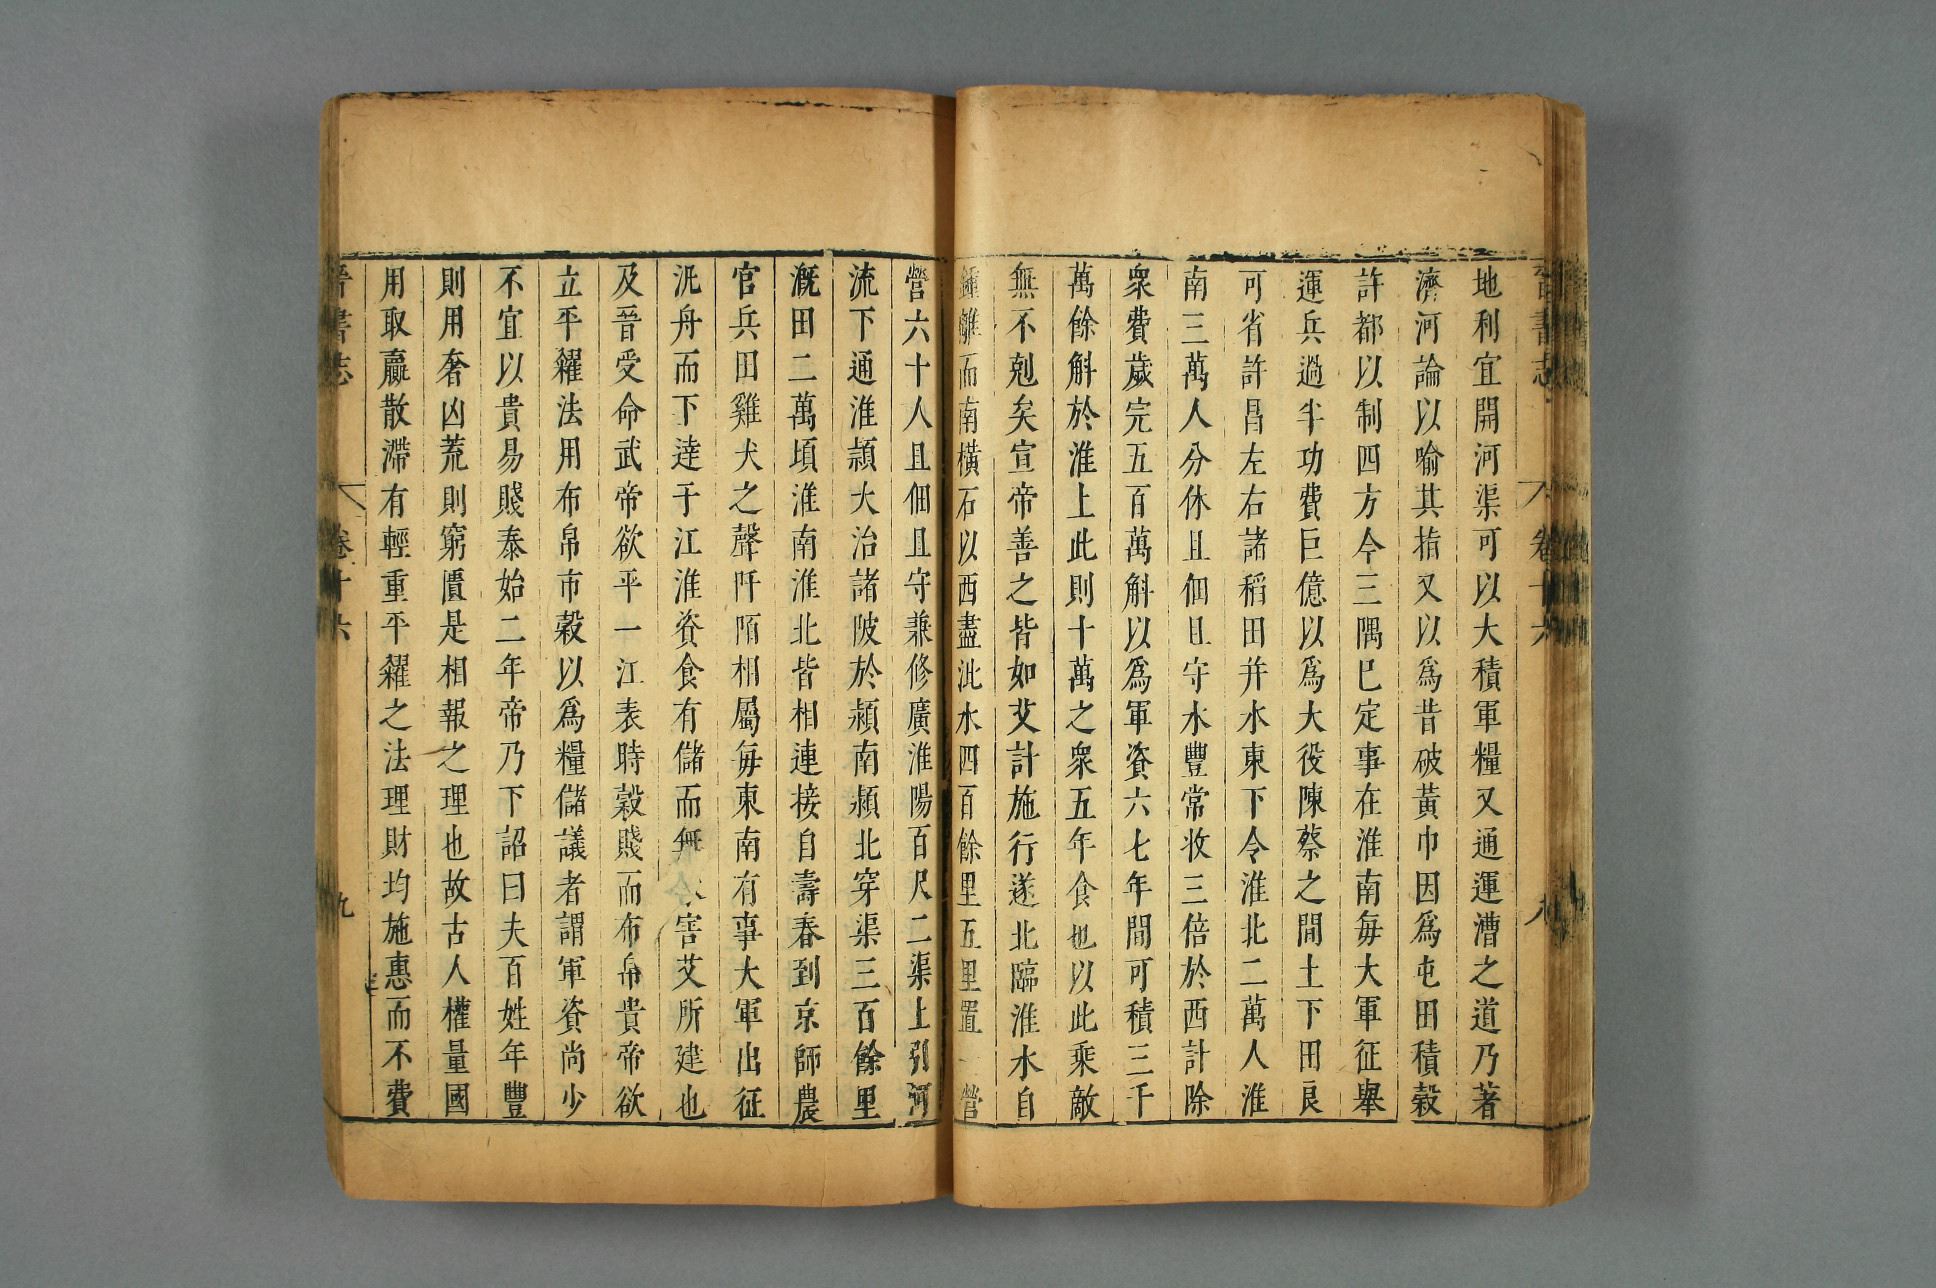 晉書志 卷十六 八
地利宜開河渠可以大積軍糧又通運漕之道乃著
濟河論以喻其指又以爲昔破黃巾因爲屯田積穀
許都以制四方今三隅巳定事在淮南每大軍征舉
運兵過半功費巨億以爲大役陳蔡之間土下田良
可省許昌左右諸稻田并水東下令淮北二萬人淮
南三萬人分休且佃且守水豐常收三倍於西計除
衆費歲完五百萬斛以爲軍資六七年間可積三千
萬餘斛於淮上此則十萬之衆五年食也以此乘敵
無不剋矣宣帝善之皆如艾計施行遂北臨淮水自
鍾離而南橫石以西盡沘水四百餘里五里置一營
營六十人且佃且守兼修廣淮陽百尺二渠上引河
流下通淮潁大治諸陂於潁南潁北穿渠三百餘里
漑田二萬頃淮南淮北皆相連接自壽春到京師農
官兵田雞犬之聲阡陌相屬每東南有事大軍出征
汎舟而下達于江淮資食有儲而無害艾所建也
及晉受命武帝欲平一江表時穀賤而布帛貴帝欲
立平糴法用布帛市穀以爲糧儲議者謂軍資尚少
不宜以貴易賤泰始二年帝乃下詔曰夫百姓年豐
則用奢凶荒則窮匱是相報之理也故古人權量國
用取贏散滯有輕重平糴之法理財均施惠而不費
晉書志 卷十六 九